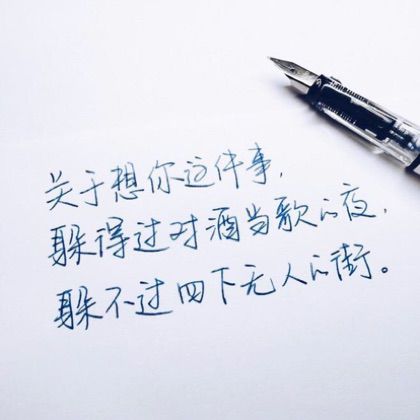 关于想你这件事，
躲得过对酒当歌的夜，
躲不过四下无人的街。